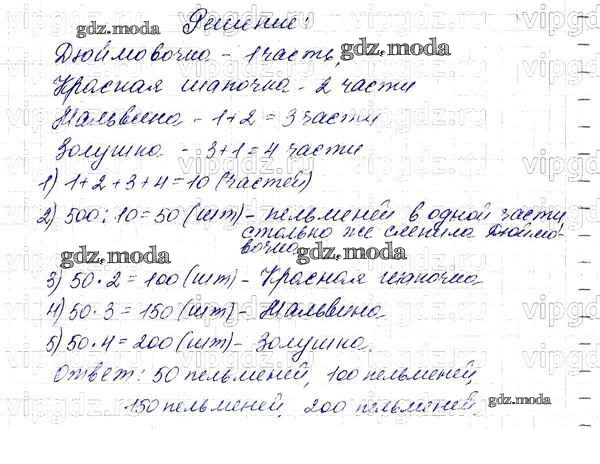 Решение:
Дюймовочка - 1 часть,
Красная шапочка - 2 части
Мальвина - 1+2=3 части
Золушка - 3+1=4 части
1) 1+2+3+4=10 (частей)
2) 500:10=50 (шт) - пельменей в одной части
столько же слепила Дюймо-
вочка
3) 50·2=100 (шт) - Красная шапочка
4) 50·3=150 (шт) - Мальвина
5) 50·4=200 (шт) - Золушка.
Ответ: 50 пельменей, 100 пельменей,
150 пельменей, 200 пельменей.
gdz.moda
gdz.moda
gdz.moda
gdz.moda
gdz.moda
gdz.moda
vipgdz.ru